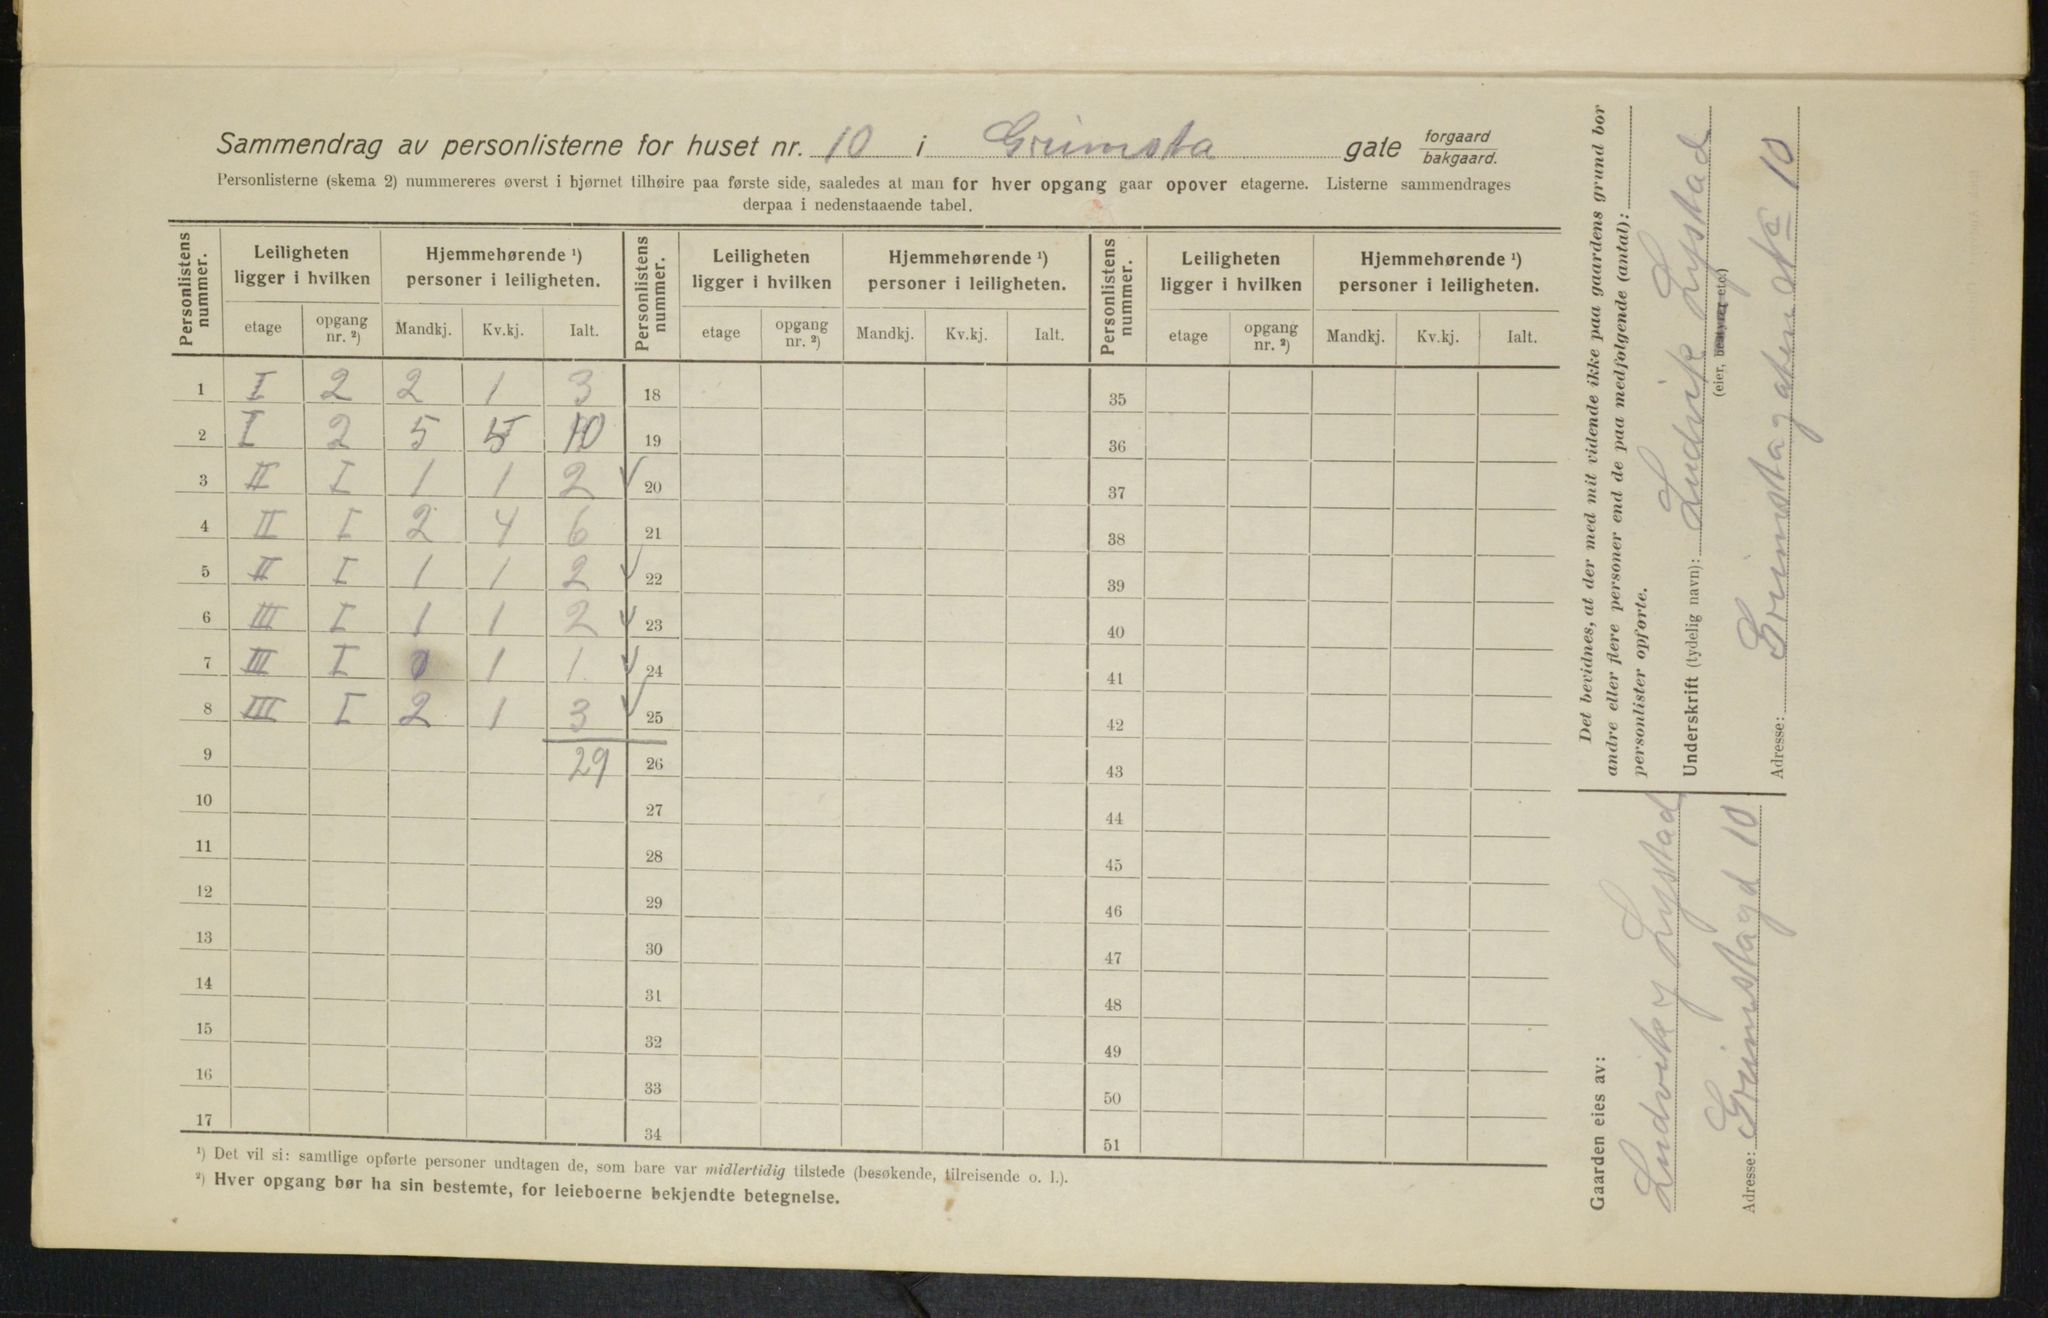 Sammendrag av personlisterne for huset nr. 10 i Grimsta gate forgaard bakgaard.
Personlisterne (skema 2) nummereres øverst i hjørnet tilhøire paa første side, saaledes at man for hver opgang gaar opover etagerne. Listerne sammendrages
derpaa i nedenstaaende tabel.
Personlistens nummer. Leiligheten ligger i hvilken Hjemmehørende ¹) personer i leiligheten. Personlistens nummer. Leiligheten ligger i hvilken Hjemmehørende ¹) personer i leiligheten. Personlistens nummer. Leiligheten ligger i hvilken Hjemmehørende ¹) personer i leiligheten.
etage opgang nr. ²) Mandkj. Kv.kj. Ialt. etage opgang nr. ²) Mandkj. Kv.kj. Ialt. etage opgang nr. ²) Mandkj. Kv.kj. Ialt.
1 I 2 2 1 3 18 35
2 I 2 5 5 10 19 36
3 II I 1 1 2 20 37
4 II I 2 4 6 21 38
5 II I 1 1 2 22 39
6 III I 1 1 2 23 40
7 III I 0 1 1 24 41
8 III I 2 1 3 25 42
9 29 26 43
10 27 44
11 28 45
12 29 46
13 30 47
14 31 48
15 32 49
16 33 50
17 34 51
¹) Det vil si: samtlige opførte personer undtagen de, som bare var midlertidig tilstede (besøkende, tilreisende o. l.).
²) Hver opgang bør ha sin bestemte, for leieboerne bekjendte betegnelse.
Det bevidnes, at der med mit vidende ikke paa gaardens grund bor
andre eller flere personer end de paa medfølgende (antal):
personlister opførte.
Underskrift (tydelig navn): Ludvik Lystad
(eier, bestyrer etc.)
Adresse: Grimstagaten No 10
Gaarden eies av:
Lystad
Adresse: Grimstagd 10